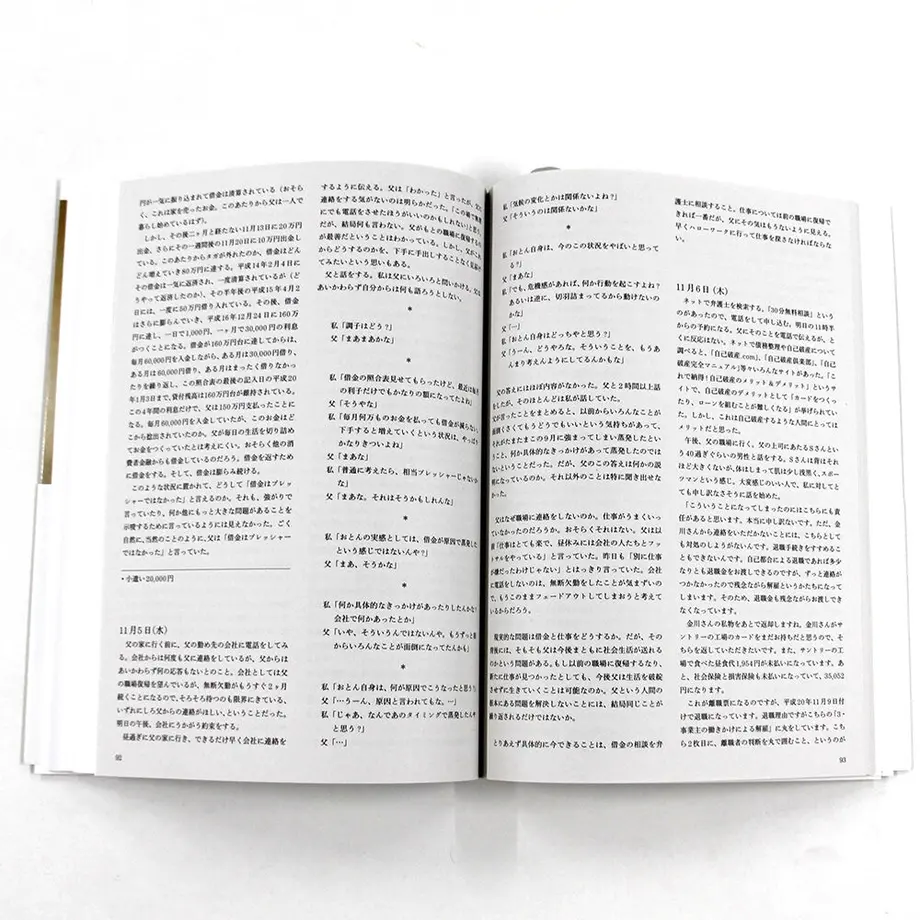 円が一気に振り込まれて借金は清算されている（おそら
く、これは家を売ったお金。このあたりから父は一人で
暮らし始めているはず）。
しかし、その後二ヶ月と経たない11月13日に20万円
出金、さらにその一週間後の11月20日に10万円出金し
ている。このあたりからタガが外れたのか、借金はどん
どん増えていき80万円に達する。平成14年2月4日に
その借金は一気に返済され、一度清算されているが（ど
うやって返済したのか）、その半年後の平成15年4月2
日には、一度に50万円借り入れている。その後、借金
はさらに膨らんでいき、平成16年12月24日に160万
円に達し、一日で1,000円、一ヶ月で30,000円の利息
がつくことになる。借金が160万台に達してからは、
毎月60,000円を入金しながら、ある月は30,000円借り、
ある月は60,000円借り、ある月はまったく借りなかっ
たりを繰り返し、この照合表の最後の記入日の平成20
年1月3日まで、貸付残高は160万円台が維持されている。
この4年間の利息だけで、父は150万円支払ったことに
なる。毎月60,000円を入金していたが、このお金はど
こから捻出されていたのか。父が毎日の生活を切り詰め
てお金をつくっていたとは考えにくい。おそらく他の消
費者金融からも借金しているのだろう。借金を返すため
に借金をする。そして、借金は膨らみ続ける。
このような状況に置かれて、どうして「借金はプレッ
シャーではなかった」と言えるのか。それも、強がりで
言っていたり、何か他にもっと大きな問題があることを
示唆するために言っているようには見えなかった。ごく
自然に、当然のことのように、父は「借金はプレッシャー
ではなかった」と言っていた。
・小遣い20,000円
11月5日(水)
父の家に行く前に、父の勤め先の会社に電話をしてみ
る。会社からは何度も父に連絡をしているが、父からは
あいかわらず何の応答もないとのこと。会社としては父
の職場復帰を望んでいるが、無断欠勤がもうすぐ2ヶ月
続くことになるので、そろそろ待つのも限界にきている、
いずれにしろ父からの連絡がほしい、ということだった。
明日の午後、会社にうかがう約束をする。
昼過ぎに父の家に行き、できるだけ早く会社に連絡を
92
するように伝える。父は「わかった」と言ったが、父に
連絡をする気がないのは明らかだった。「この場で無理
にでも電話をさせたほうがいいのかもしれない」と思っ
たが、結局何も言わない。父がもとの職場に復帰するの
が最善だということはわかっている。しかし、父がこれ
からどうするのかを、下手に手出しすることなく見届け
てみたいという思いもある。
父と話をする。私は父にいろいろと問いかける。父は
あいかわらず自分からは何も語ろうとしない。
*
私「調子はどう？」
父「まあまあかな」
*
私「借金の照合表見せてもらったけど、最近は毎月
の利子だけでもかなりの額になってたよね」
父「そうやな」
私「毎月何万ものお金を払っても借金が減らない、
下手すると増えていくという状況は、やっぱ
かなりきついよね」
父「まあな」
私「普通に考えたら、相当プレッシャーじゃないか
な」
父「まあな、それはそうかもしれんな」
*
私「おとんの実感としては、借金が原因で蒸発した
という感じではないんや？」
父「まあ、そうかな」
*
私「何か具体的なきっかけがあったりしたんかな？
会社で何かあったとか」
父「いや、そういうんではないんや。もうずっと前
からいろんなことが面倒になってたんかも」
*
私「おとん自身は、何が原因でこうなったと思う？」
父「…うーん、原因と言われてもな。…」
私「じゃあ、なんであのタイミングで蒸発したんや
と思う？」
父「…」
私「気候の変化とかは関係ないよね？」
父「そういうのは関係ないかな」
*
私「おとん自身は、今のこの状況をやばいと思って
る？」
父「まあな」
私「でも、危機感があれば、何か行動を起こすよね？
あるいは逆に、切羽詰まってるから動けないの
かな」
父「…」
私「おとん自身はどっちやと思う？」
父「うーん、どうやろな。そういうことを、もうあ
んまり考えんようにしてるんかもな」
父の答えにはほぼ内容がなかった。父と2時間以上話
をしたが、そのほとんどは私が話していた。
父が言ったことをまとめると、以前からいろんなことが
面倒くさくてもうどうでもいいという気持ちがあって、
それがたまたまこの9月に強まってしまい蒸発したとい
うこと。何か具体的なきっかけがあって蒸発したのでは
ないということだった。だが、父のこの答えは何かの説
明になっているのか。それ以外のことは特に聞き出せな
かった。
父はなぜ職場に連絡をしないのか。仕事がうまくいっ
ていなかったのだろうか。おそらくそれはない。父は以
前「仕事はとても楽で、昼休みには会社の人たちとファ
ーサルをやっている」と言っていた。昨日も「別に仕事
が嫌だったわけじゃない」とはっきり言っていた。会社
に電話をしないのは、無断欠勤をしたことが気まずいの
で、もうこのままフェードアウトしてしまおうと考えて
いるからだろう。
現実的な問題は借金と仕事をどうするか。だが、その
背後には、そもそも父は今後まともに社会生活が送れる
のかという問題がある。もし以前の職場に復帰するなり、
新たに仕事が見つかったとしても、今後父は生活を破綻
させずに生きていくことは可能なのか。父という人間の
根本にある問題を解決しないことには、結局同じことが
繰り返されるだけではないか。
とりあえず具体的に今できることは、借金の相談を弁
護士に相談すること。仕事については前の職場に復帰で
きれば一番だが、父にその気はもうないように見える。
早くハローワークに行って仕事を探さなければならな
い。
11月6日(木)
ネットで弁護士を検索する。「30分無料相談」という
のがあったので、電話をして申し込む。明日の11時半
からの予約になる。父にそのことを電話で伝えるが、と
くに反応はない。ネットで債務整理や自己破産について
調べると、「自己破産.com」、「自己破産倶楽部」、「自己
破産完全マニュアル」等々いろんなサイトがあった。「こ
れで納得！自己破産のメリット&デメリット」というサ
イトで、自己破産のデメリットとして「カードをつくっ
たり、ローンを組むことが難しくなる」が挙げられてい
た。しかし、これは自己破産するような人間にとっては
メリットだと思った。
午後、父の職場に行く。父の上司にあたるSさんと
いう40過ぎぐらいの男性と話をする。Sさんは背はそれ
ほど大きくないが、体はしまって肌は少し浅黒く、スポー
ツマンという感じ。大変感じのいい人で、私に対してと
ても申し訳なさそうに話を始めた。
「こういうことになってしまったのにはこちらにも責
任があると思います。本当に申し訳ないです。ただ、金
川さんから連絡をいただかないことには、こちらとして
も対処のしようがないんです。退職手続きをすすめるこ
ともできません。自己都合による退職であれば多少な
りとも退職金をお渡しできるのですが、ずっと連絡が
つかなかったので残念ながら解雇というかたちになって
しまいます。そのため、退職金も残念ながらお渡しでき
なくなっています。
金川さんの私物をあとで返却しますね。金川さんがサ
ントリーの工場のカードをまだお持ちだと思うので、そ
ちらを返していただきたいです。また、サントリーの工
場で食べた昼食代1,954円が未払いになっています。あ
と、社会保険と損害保険も未払いになっていて、35,052
円になります。
これが離職票になるのですが、平成20年11月9日付
けで退職になっています。退職理由ですがこちらの「3・
事業主の働きかけによる解雇」に丸をしています。こち
ら2枚目に、離職者の判断を丸で囲むこと、というのが
93